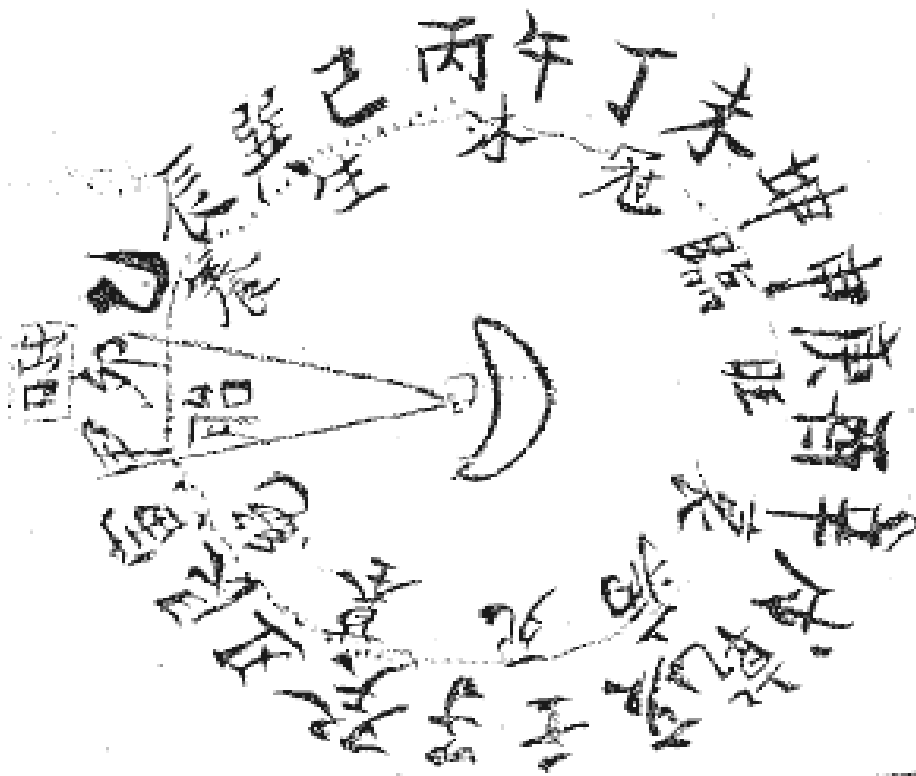 辰巽巳丙午丁未坤申庚酉辛戌乾亥壬子癸丑艮寅甲卯乙
生沐冠臨旺衰病死墓絕胎養